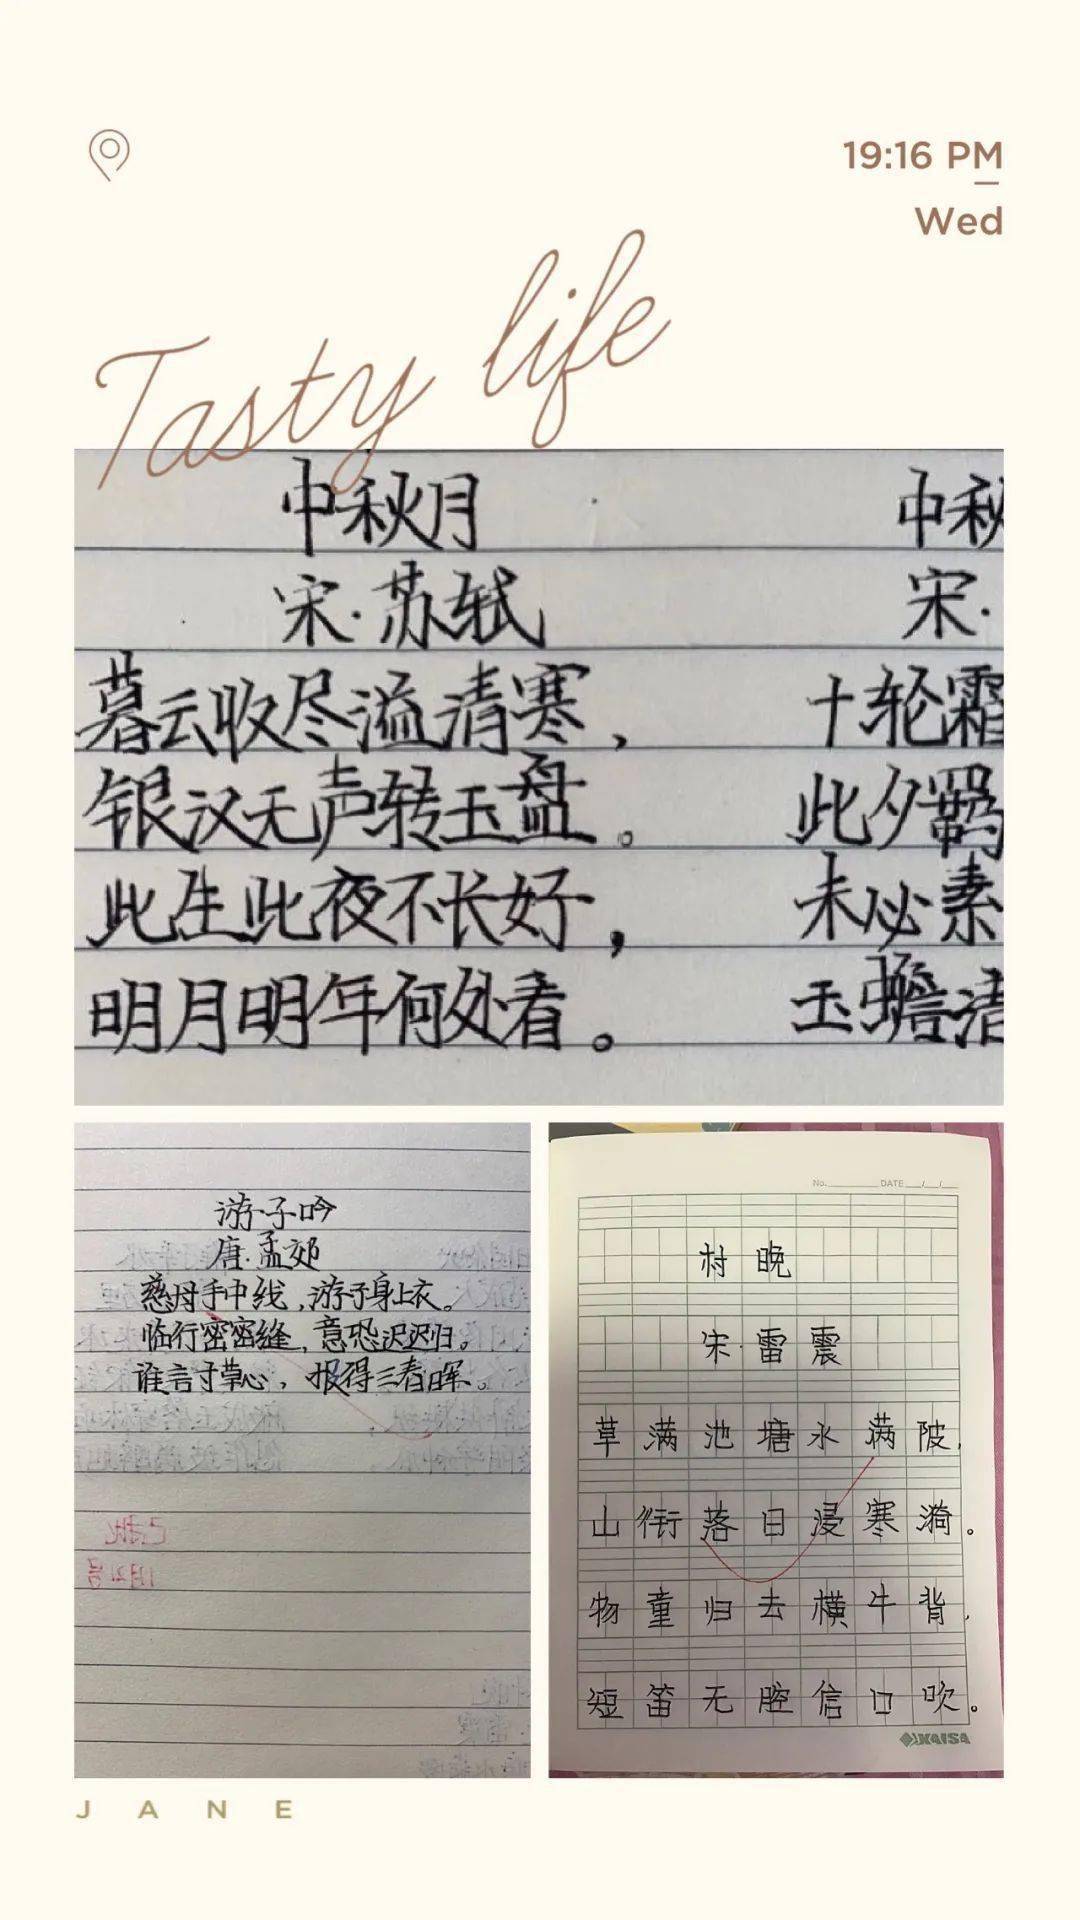 19:16 PM
Wed
Tasty life
中秋月
宋·苏轼
暮云收尽溢清寒，
银汉无声转玉盘。
此生此夜不长好，
明月明年何处看。
中秋
宋·
十轮霜
此夕羁
未必素
玉蟾
游子吟
唐·孟郊
慈母手中线，游子身上衣。
临行密密缝，意恐迟迟归。
谁言寸草心，报得三春晖。
No. DATE / /
村晚
宋·雷震
草满池塘水满陂，
山衔落日浸寒漪。
物童归去横牛背，
短笛无腔信口吹。
KAISA
JANE